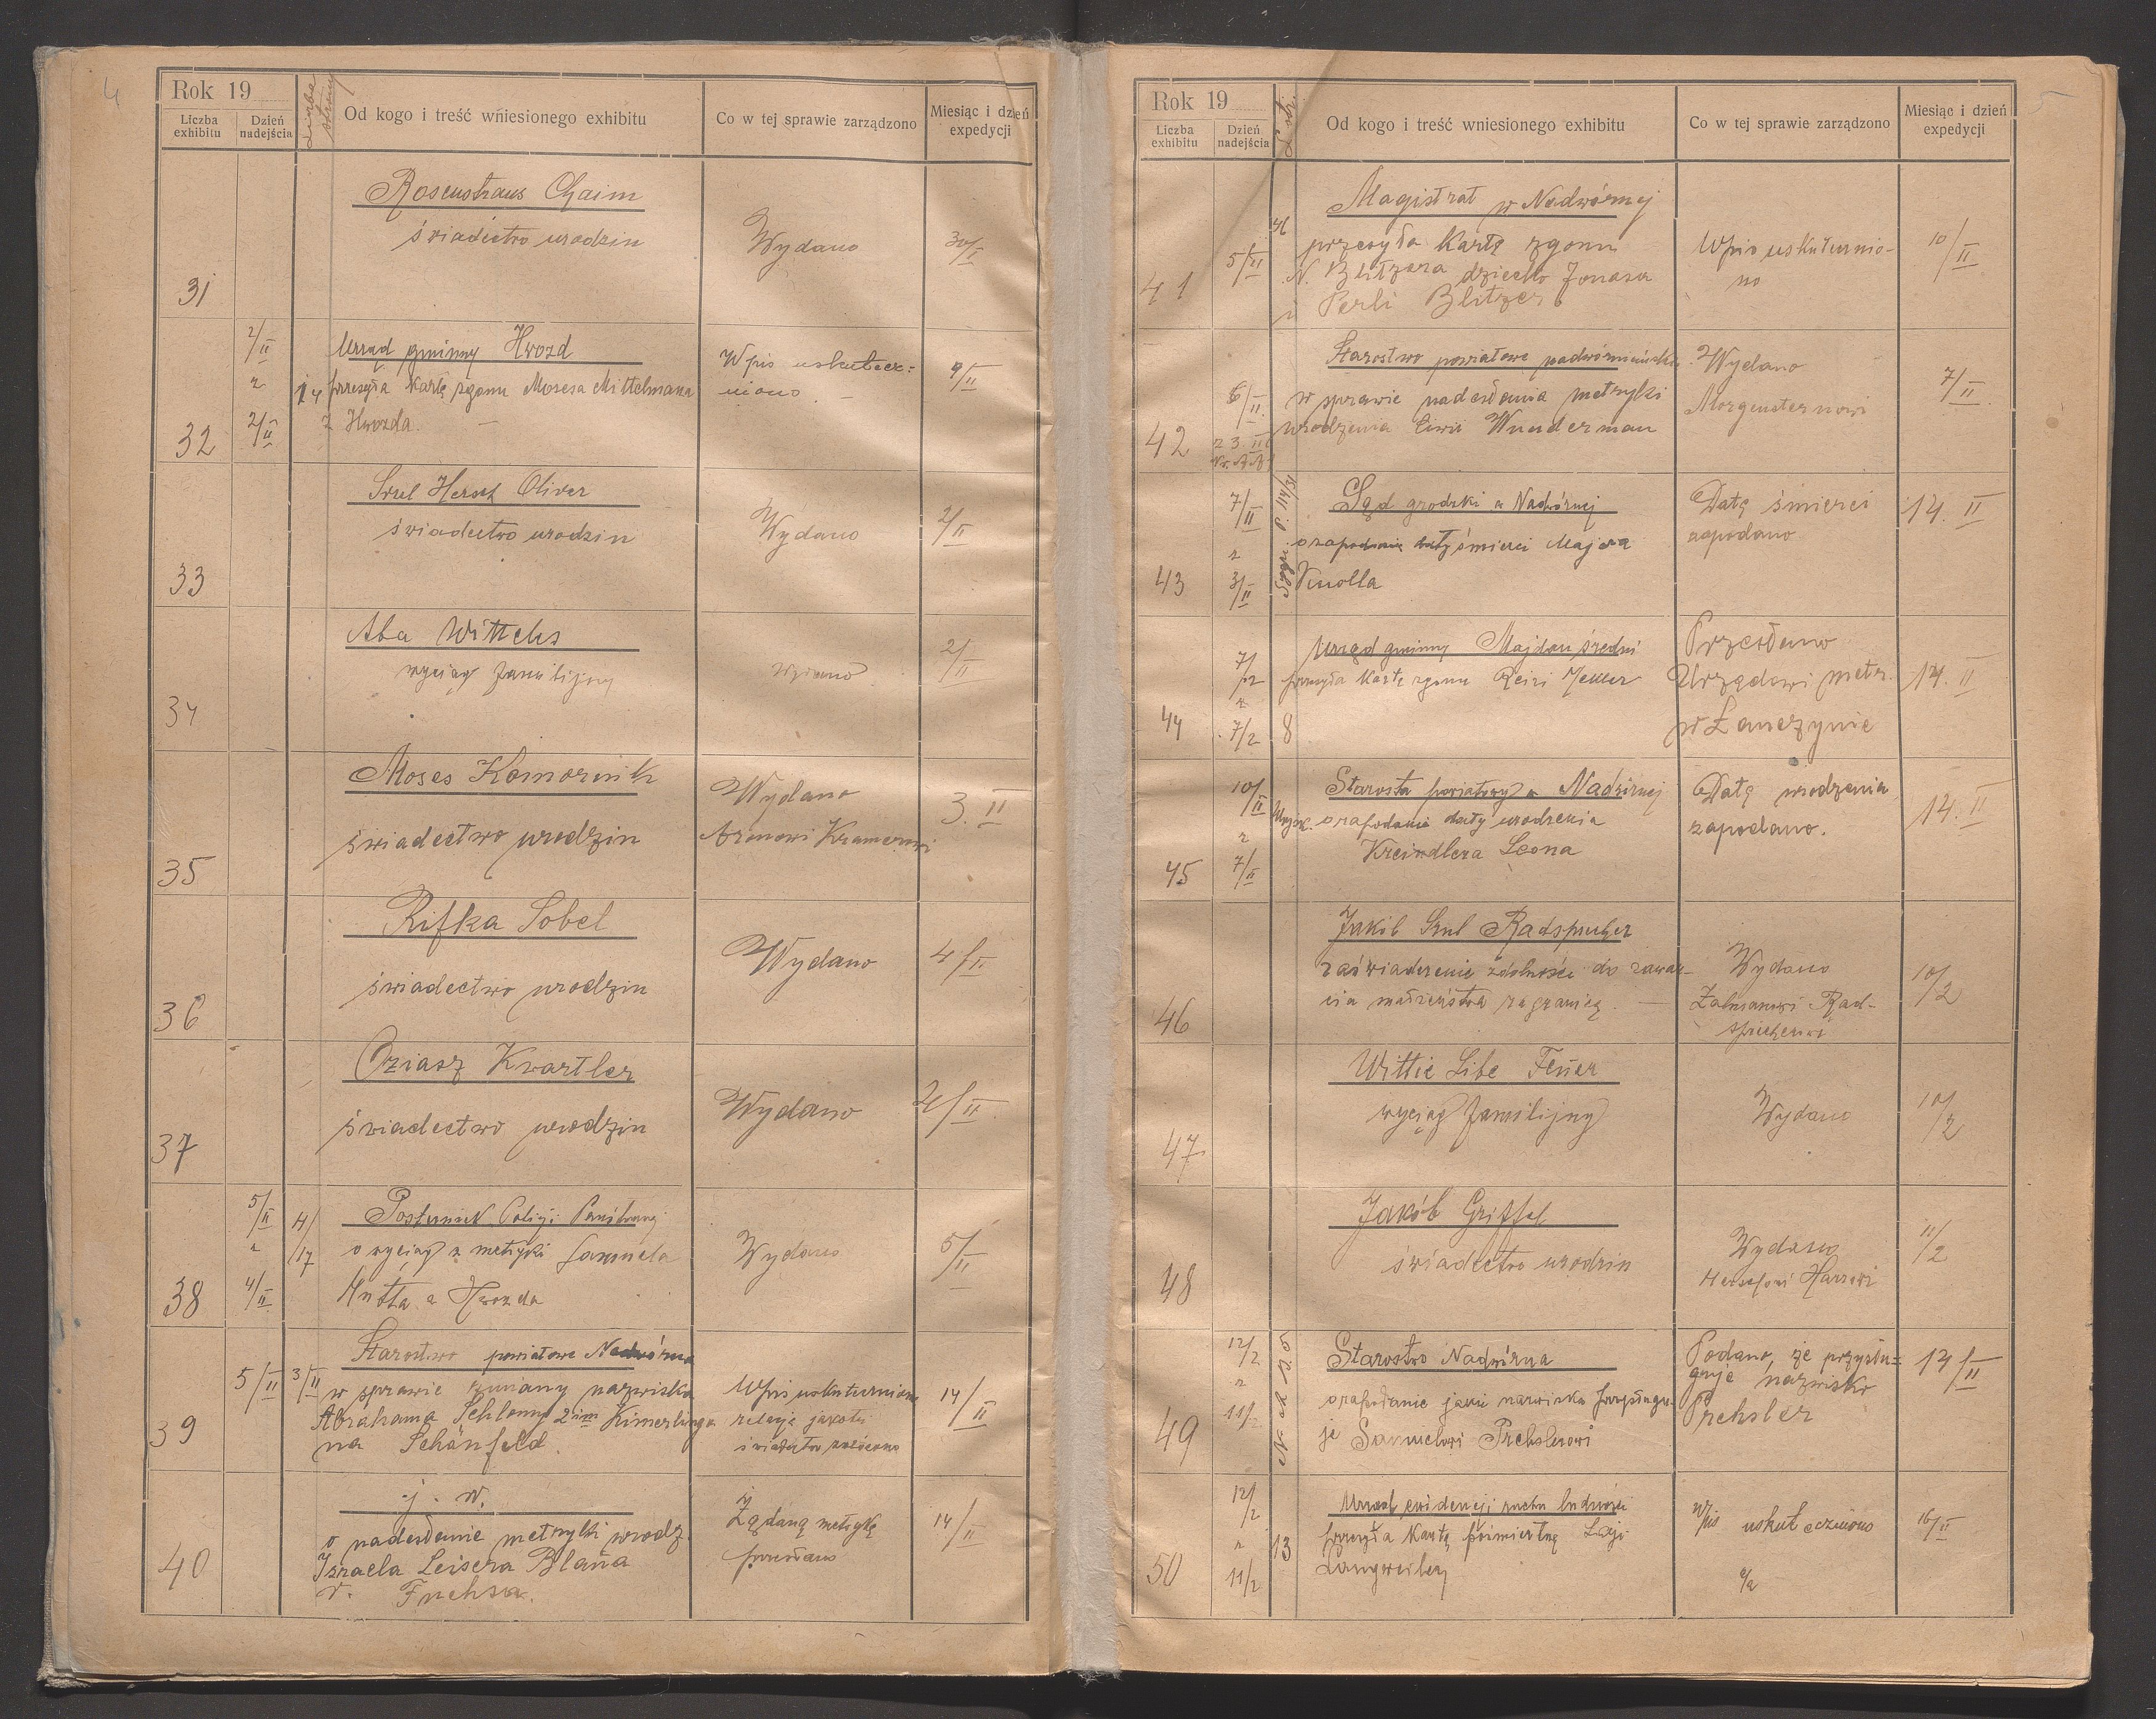 4
Rok 19
Liczba exhibitu
Dzień nadejścia
Liczba strony
Od kogo i treść wniesionego exhibitu
Co w tej sprawie zarządzono
Miesiąc i dzień expedycji
31
Rosenstraus Chaim
świadectwo urodzin
Wydano
30/I
32
2/II
z
2/II
14
Urząd gminny Hwozd
przesyła kartę zgonu Mosesa Mittelmana
z Hwozda.
Wpis uskutecz-
niono.
9/II
33
Srul Hersch Oliver
świadectwo urodzin
Wydano
2/II
34
Aba Wittels
wyciąg familijny
Wydano
2/II
35
Moses Komornik
świadectwo urodzin
Wydano
Aronowi Kramerowi
3. II
36
Rifka Sobel
świadectwo urodzin
Wydano
4/II
37
Oziasz Kwartler
świadectwo urodzin
Wydano
4/II
38
5/II
z
4/II
4/17
Posterunek Policji Państwowej
o wyciąg z metryki Samuela
Hutta z Hwozda
Wydano
5/II
39
5/II
3/II
Starostwo powiatowe Nadwórna
w sprawie zmiany nazwiska
Abrahama Schlomy 2im Kimerlinga
na Schönfeld.
Wpis uskuteczniono
relację jakoteż
świadectwo zwrócono
14/II
40
j. w.
o nadesłanie metryki urodz.
Izraela Leisera Blaua
v. Fuchsa.
Żądaną metrykę
przesłano
14/II
5
Rok 19
Liczba exhibitu
Dzień nadejścia
L. str.
Od kogo i treść wniesionego exhibitu
Co w tej sprawie zarządzono
Miesiąc i dzień expedycji
41
5/II
Magistrat w Nadwórnej
przesyła kartę zgonu
N. Blitzera dziecko Jonasa
i Perli Blitzer
Wpis uskutecznio-
no
10/II
42
6/II
Starostwo powiatowe nadwórniańskie
w sprawie nadesłania metryki
urodzenia Wunderman
Wydano
Morgensternowi
7/II
43
7/II
z
3/II
Sąd grodzki w Nadwórnej
o zapodanie daty śmierci Majera
Knolla
Datę śmierci
zapodano
14. II
44
7/2
z
7/2
8
Urząd gminny Majdan średni
przesyła kartę zgonu Reizi Jekler
Przesłano
Urzędowi metr.
w Łanczynie
14. II
45
10/II
z
7/II
Starosta powiatowy w Nadwórnej
o zapodanie daty urodzenia
Kreindlera Leona
Datę urodzenia
zapodano.
14. II
46
Jakób Srul Radsprecher
zaświadczenie zdolności do zawar-
cia małżeństwa zagranicą.
Wydano
Zalmanowi Rad-
sprecherowi
10/2
47
Wittie Libe Feuer
wyciąg familijny
Wydano
10/2
48
Jakób Griffel
świadectwo urodzin
Wydano
11/2
49
12/2
z
11/2
Starostwo Nadwórna
o zapodanie jakie nazwisko przysługu-
je Samuelowi Prekslerowi
Podano, że przysłu-
guje nazwisko
Preksler
14/II
50
12/2
z
11/2
13
Urząd ewidencji ruchu ludności
przesyła kartę pośmiertną
Wpis uskuteczniono
a/a
16/II